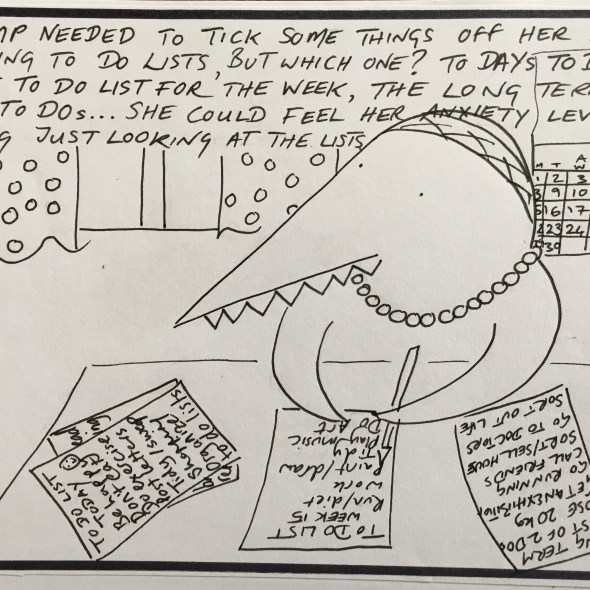 MP NEEDED TO TICK SOME THINGS OFF HER
ING TO DO LISTS, BUT WHICH ONE? TO DAYS TO D
TO DO LIST FOR THE WEEK, THE LONG TERM
TO DOs... SHE COULD FEEL HER ANXIETY LEV
G JUST LOOKING AT THE LISTS
M T W
1 2 3
9 10
16 17
23 24
30
TO DO LIST
TODAY
Be happy
Don't eat bread
Do exercise
Post letters
Tidy/swap
Shopping
Organize
to do lists
TO DO LIST
WEEK 15
Run/diet
Work
Paint/draw
Tidy
Play music
Do Art
NG TERM
IST OF 2 DOs
OSE 20 kg
GET AN EXHIBITION
GO RUNNING
CALL FRIENDS
SORT/SELL HOUSE
GO TO DOCTORS
SORT OUT LIFE